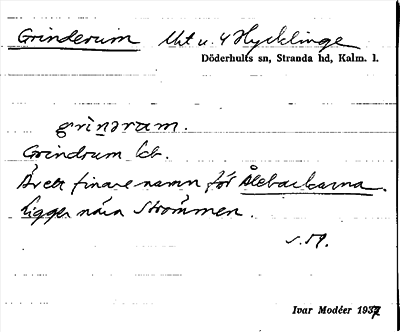 Grinderum Utr u. 4 Hycklinge
Döderhults sn, Stranda hd, Kalm. l.
grìnǝram.
Grindrum lch.
Är ett finare namn för Ålebackarna.
Ligger nära Strömmen.
Ivar Modéer 1937